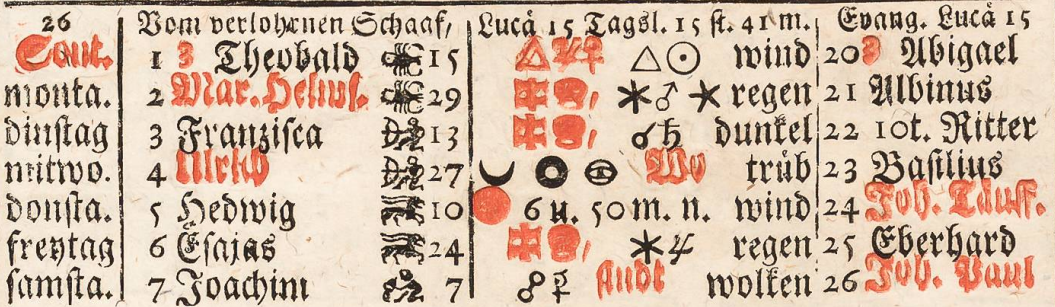 26 Vom verlohrnen Schaaf, Lucä 15 Tagsl. 15 st. 41 m. Evang. Lucä 15
Sont. 1 3 Theobald 15 △ ♀ △☉ wind 20 3 Abigael
monta. 2 Mar. Heims. 29 ✶♂ ✶ regen 21 Albinus
dinstag 3 Franzisca 13 ☌♄ dunkel 22 10t. Ritter
mitwo. 4 Ulrich 27 trüb 23 Basilius
donsta. 5 Hedwig 10 6 u. 50 m. n. wind 24 Joh. Täuff.
freytag 6 Esajas 24 ✶♃ regen 25 Eberhard
samsta. 7 Joachim 7 ☍☿ wolken 26 Joh. Paul